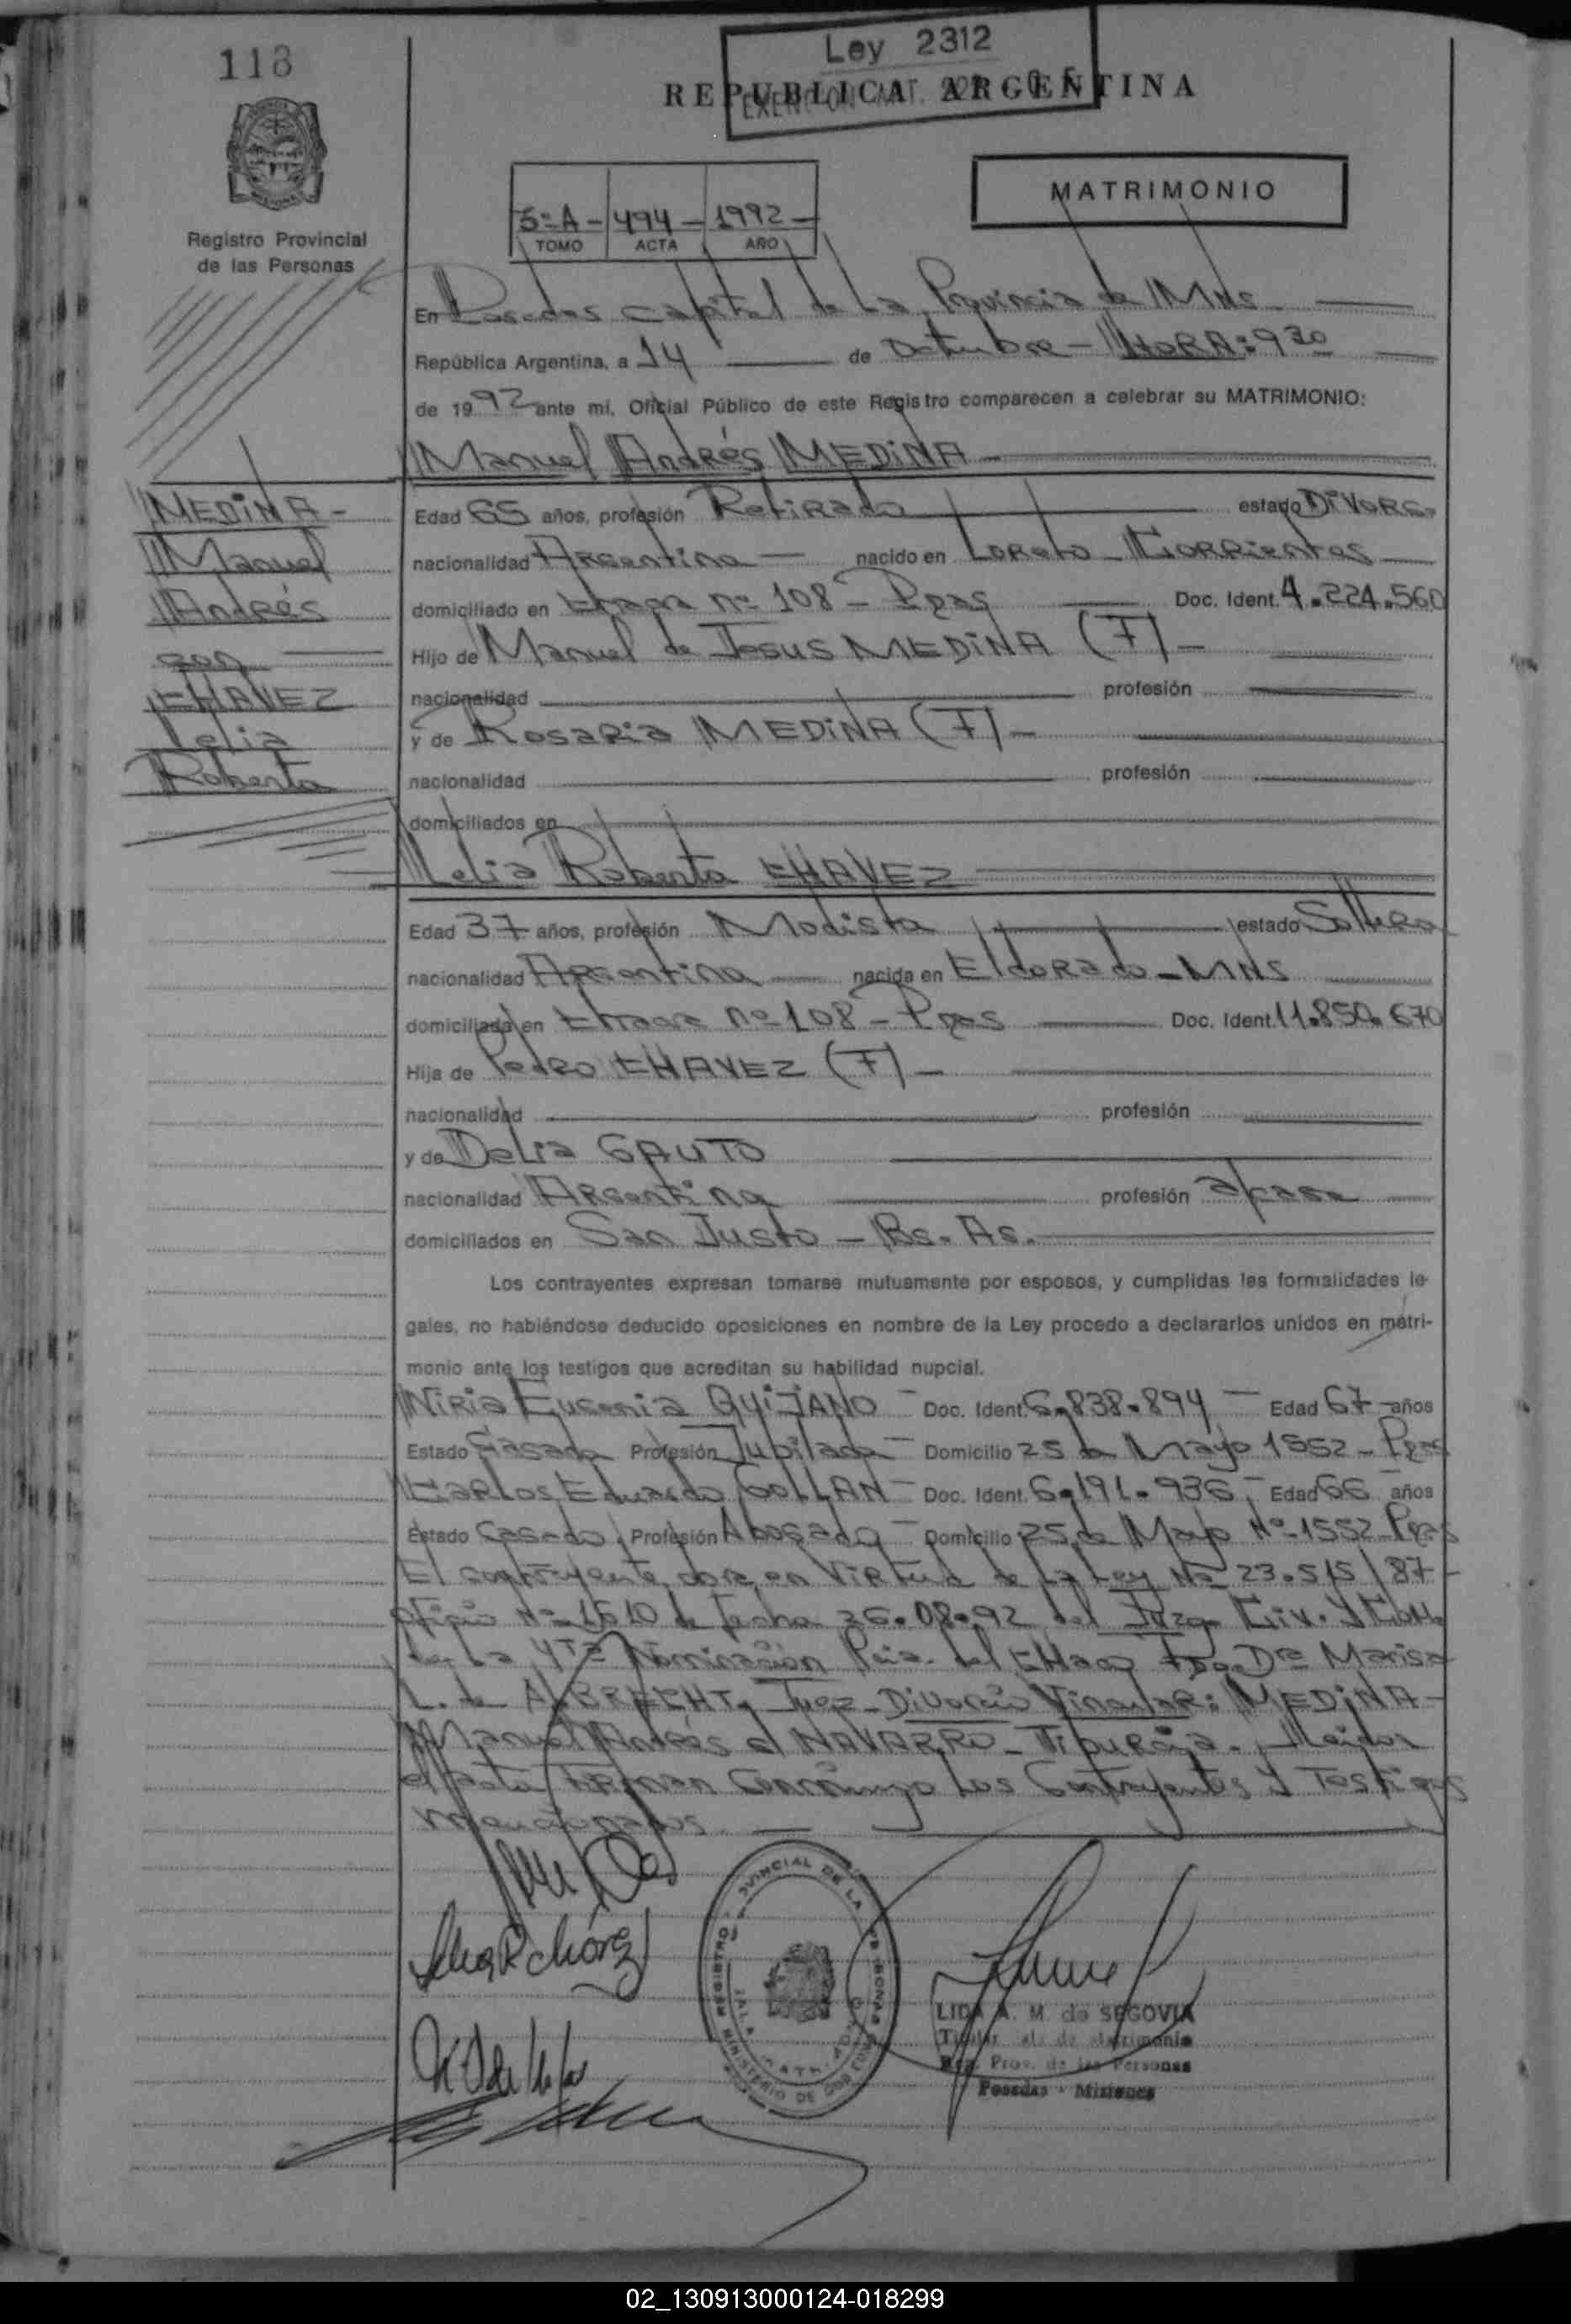 118
Ley 2312
REPUBLICA ARGENTINA
MATRIMONIO
5º A - 494 - 1992 -
TOMO ACTA AÑO
Registro Provincial
de las Personas
En Posadas capital de la Provincia de Mns
República Argentina, a 14 de Octubre - HORA: 9 30
de 1992 ante mi, Oficial Público de este Registro comparecen a celebrar su MATRIMONIO:
Manuel Andrés MEDINA -
MEDINA -
Manuel
Andrés
con
CHAVEZ
Lelia
Roberta
Edad 65 años, profesión Retirado estado Divorc.
nacionalidad Argentina nacido en Loreto - Corrientes
domiciliado en nº 108 - Ppas Doc. Ident. 4.224.560
Hijo de Manuel de Jesus MEDINA (F) -
nacionalidad profesión
y de Rosaria MEDINA (F) -
nacionalidad profesión
domiciliados en
Lelia Roberta CHAVEZ
Edad 37 años, profesión Modista estado Soltera
nacionalidad Argentina nacida en Eldorado - MNS
domiciliada en nº 108 - Ppas Doc. Ident. 11.850.670
Hija de Pedro CHAVEZ (F) -
nacionalidad profesión
y de Delia GAUTO
nacionalidad Argentina profesión a/casa
domiciliados en San Justo - Bs. As.
Los contrayentes expresan tomarse mutuamente por esposos, y cumplidas las formalidades le-
gales, no habiéndose deducido oposiciones en nombre de la Ley procedo a declararlos unidos en matri-
monio ante los testigos que acreditan su habilidad nupcial.
Niria Eugenia QUIJANO - Doc. Ident. 6.838.894 - Edad 67 años
Estado Casada Profesión Jubilada - Domicilio 25 de Mayo 1552 - Ppas
Carlos Eduardo COLLAN - Doc. Ident. 6.191.936 - Edad 66 años
Estado Casado Profesión Abogado - Domicilio 25 de Mayo Nº 1552 Ppas
El contrayente en Virtud de la Ley Nº 23.515/87 -
oficio Nº 1610 de fecha 26.08.92 del Juzg. Civ. y Com.
de la 4ta Nominación Pcia. del Chaco Dra Marisa
L. de ALBRECHT, Juez - Divorcio Vincular: MEDINA -
Manuel Andrés c/ NAVARRO - Tiburcia. Leida
el acta firman conmigo los Contrayentes y Testigos
mencionados
Lelia R Chávez
REGISTRO PROVINCIAL DE LA
MINISTERIO DE
LIDA A. M. de SEGOVIA
Titular de Matrimonio
Reg. Prov. de las Personas
Posadas - Misiones
02_130913000124-018299